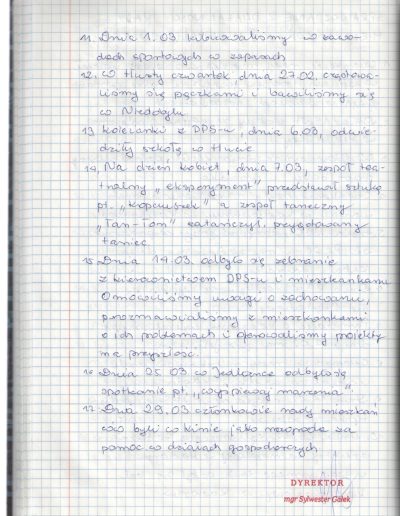 11. Dnia 1.03. kibicowaliśmy w zawo-
dach sportowych w zapasach
12. w tłusty czwartek, dnia 27.02. częstowa-
liśmy się pączkami i bawiliśmy się
w Niedobylu
13 koleżanki z DPS-u, dnia 6.03, odwie-
dziły szkołę w Iłucie
14. Na dzień kobiet, dnia 7.03, zespół tea-
tralny "eksperyment" przedstawił sztukę
pt. "kopciuszek" a zespół taneczny
"Tan-Tom" zatańczył przygotowany
taniec
15 Dnia 14.03. odbyło się zebranie
z kierownictwem DPS-u i mieszkankami
Omówiliśmy uwagi o zachowaniu,
porozmawialiśmy z mieszkankami
o ich problemach i planowaliśmy projekty
na przyszłość.
16 Dnia 25.03 w Jedlance odbyło się
spotkanie pt. "wyśpiewaj marzenia"
17 Dnia 29.03. członkowie rady mieszkań
ców byli w kinie jako nagroda za
pomoc w działach gospodarczych
DYREKTOR
mgr Sylwester Gałek